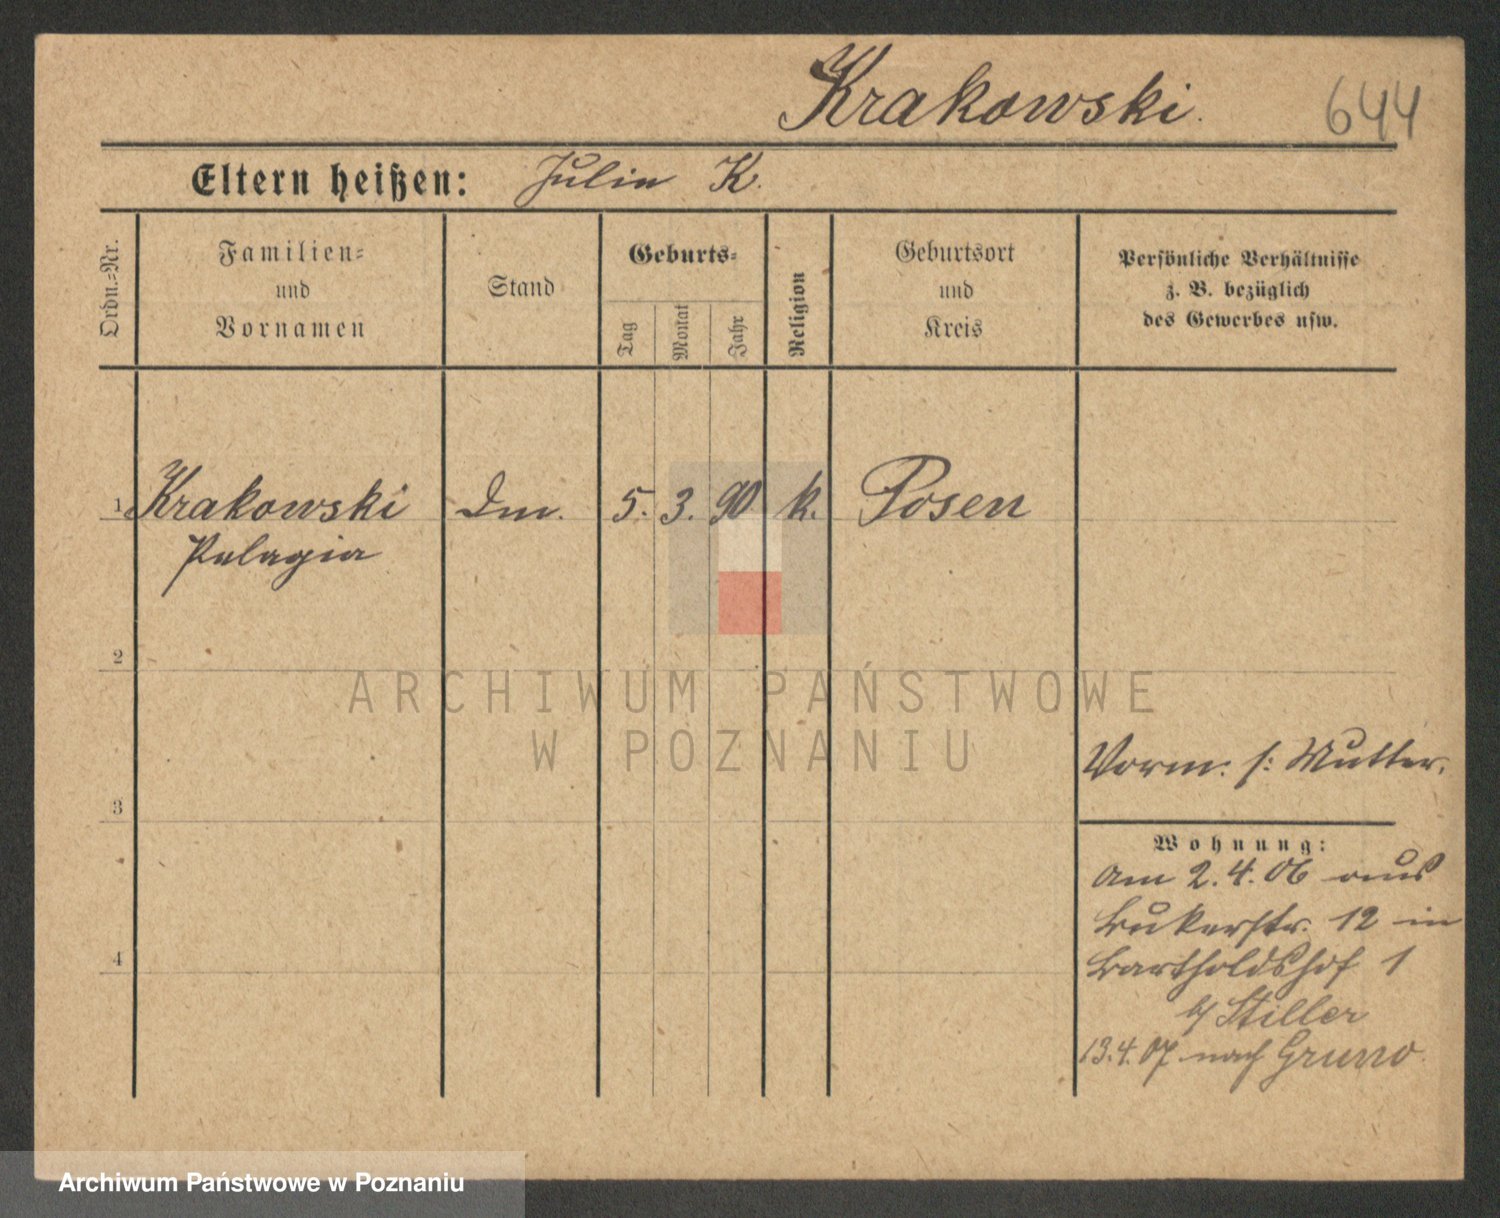 Krakowski.
644
Eltern heißen: Julie K.
Ordn.-Nr.
Familien-
und
Vornamen
Stand
Geburts-
Tag
Monat
Jahr
Religion
Geburtsort
und
Kreis
Persönliche Verhältnisse
z. B. bezüglich
des Gewerbes usw.
1 Krakowski Dm. 5. 3. 90 k. Posen
Pelagia
2
ARCHIWUM PAŃSTWOWE
W POZNANIU
Vorm: s: Mutter.
3
Wohnung:
am 2.4.06 aus
Bukerstr. 12 in
4
Bartholdshof 1
b/ Stiller
13.4.07 nach
Archiwum Państwowe w Poznaniu